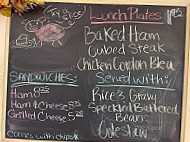 Lunch Plates
Baked Ham
Cubed Steak
Chicken Cordon Bleu
Served with:
Rice & Gravy
Speckled Buttered
Beans
Coleslaw
Sandwiches:
Ham
Ham & Cheese
Grilled Cheese
Comes with chips